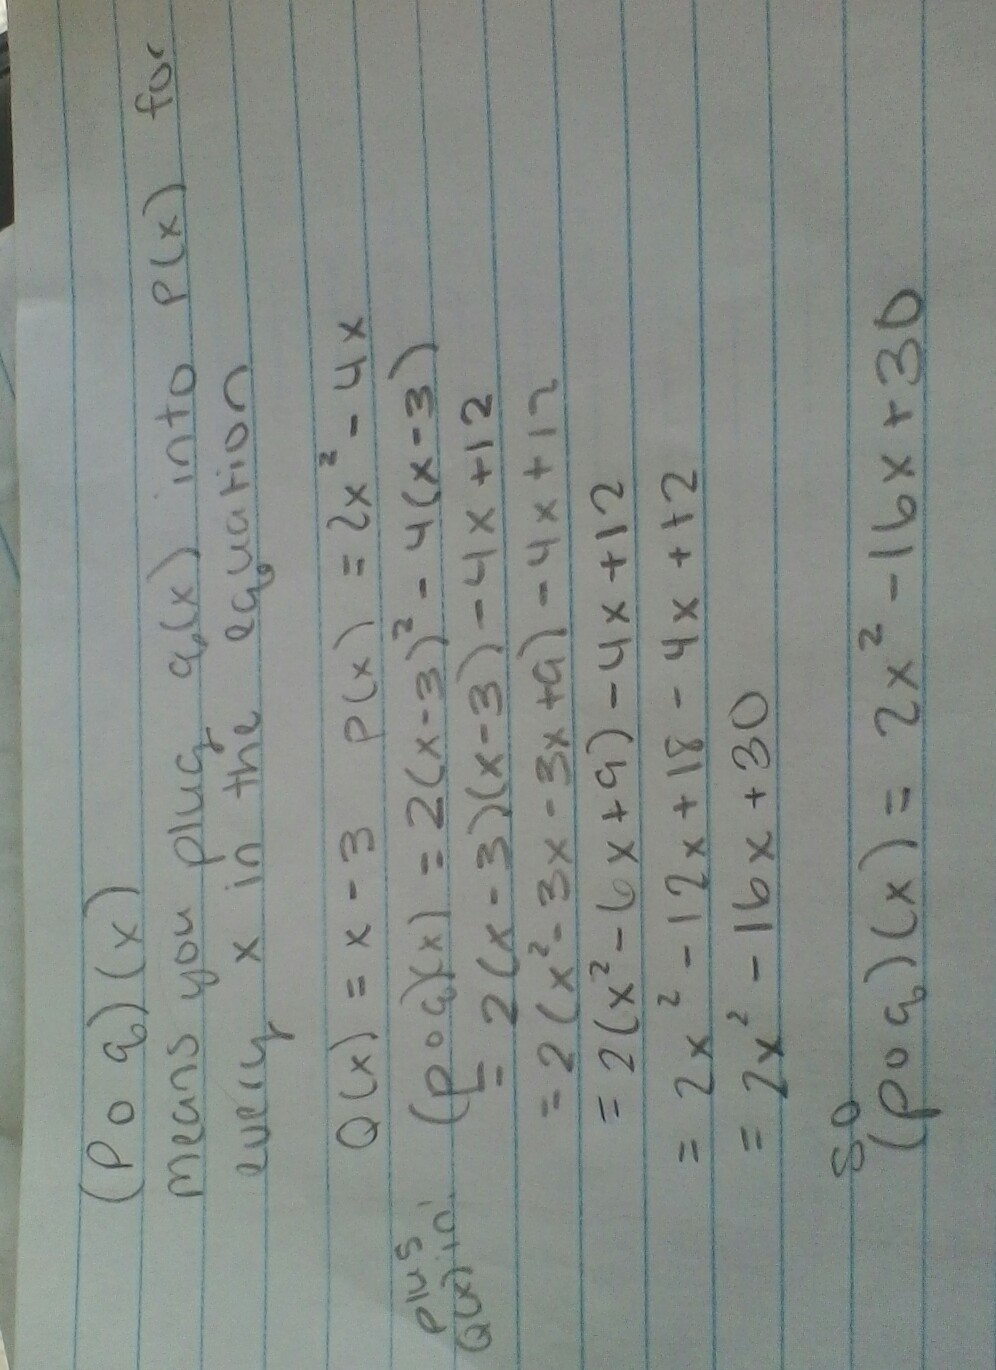 (P o q)(x)
means you plug q(x) into P(x) for
every x in the equation
Q(x) = x - 3 P(x) = 2x² - 4x
plug Q(x) in: (p o q)(x) = 2(x-3)² - 4(x-3)
= 2(x-3)(x-3) - 4x + 12
= 2(x² - 3x - 3x + 9) - 4x + 12
= 2(x² - 6x + 9) - 4x + 12
= 2x² - 12x + 18 - 4x + 12
= 2x² - 16x + 30
So
(p o q)(x) = 2x² - 16x + 30